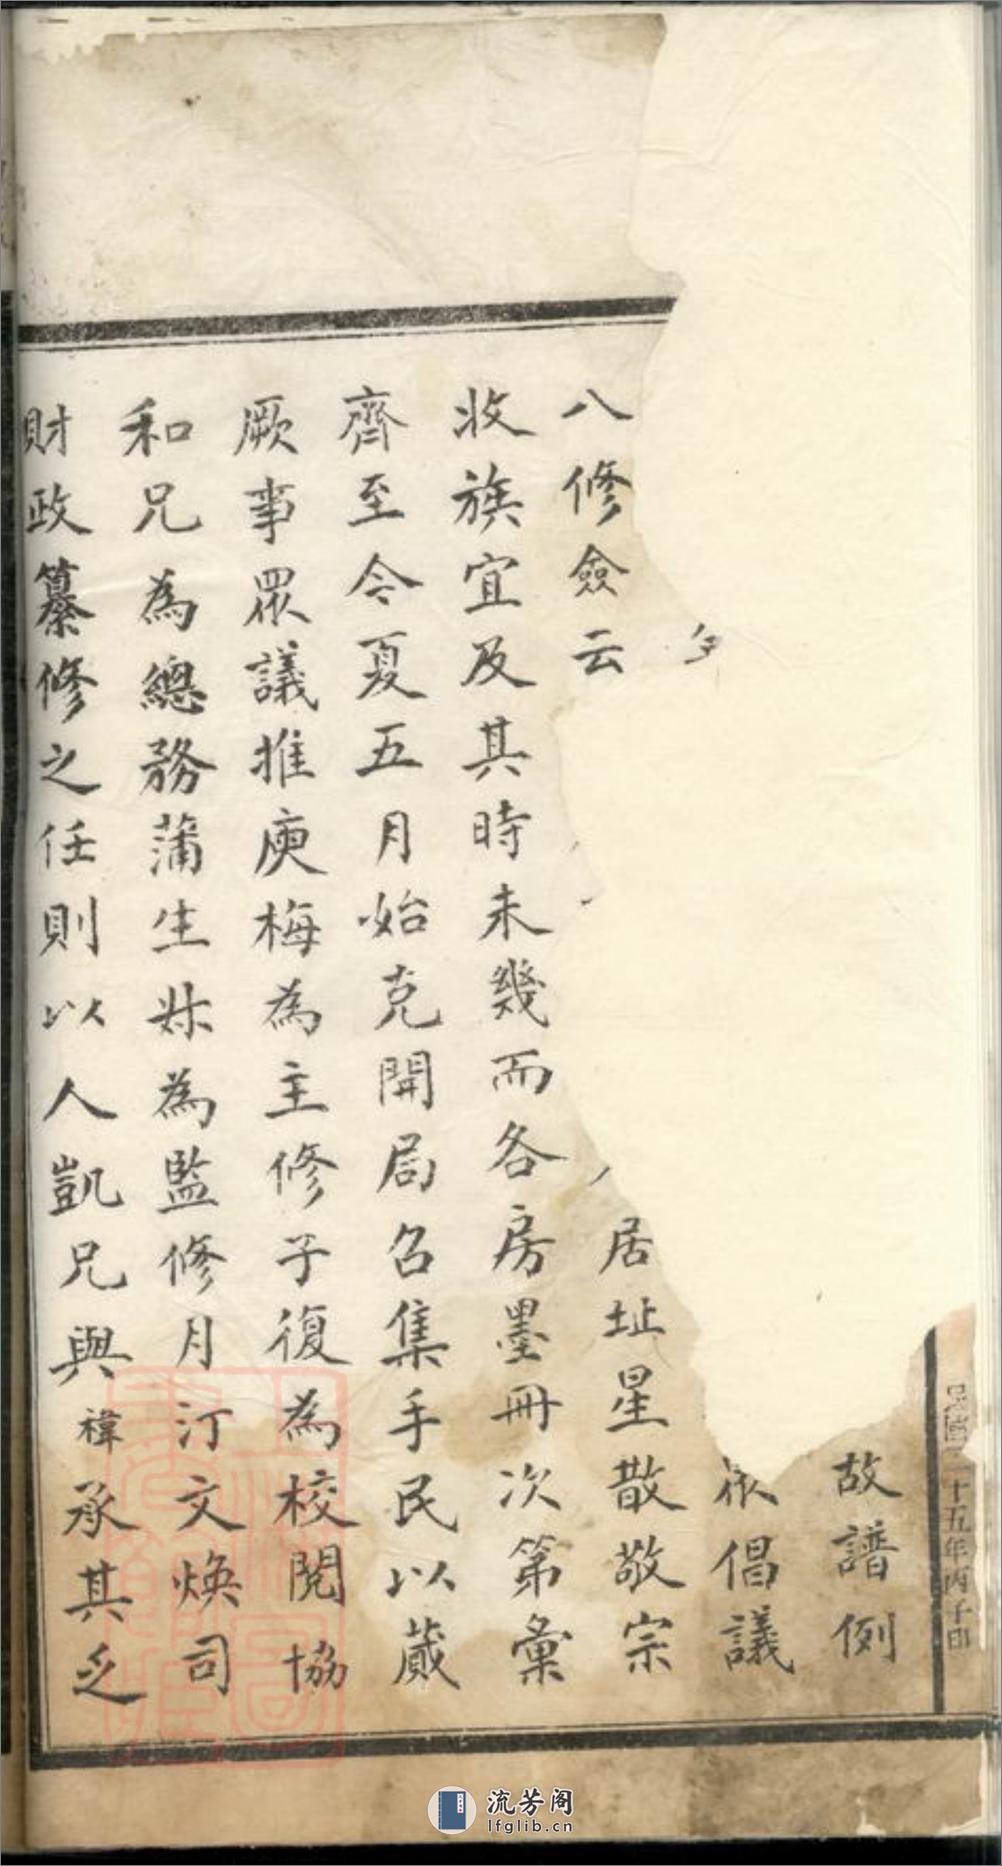 民國二十五年丙子印
故譜例
依倡議
八修僉云
居址星散敬宗
收族宜及其時未幾而各房墨冊次第彙
齊至今夏五月始克開局召集手民以蕆
厥事眾議推庾梅為主修子復為校閱協
和兄為總務蒲生姊為監修月汀文煥司
財政纂修之任則以人凱兄與禕承其乏
流芳阁
lfglib.cn